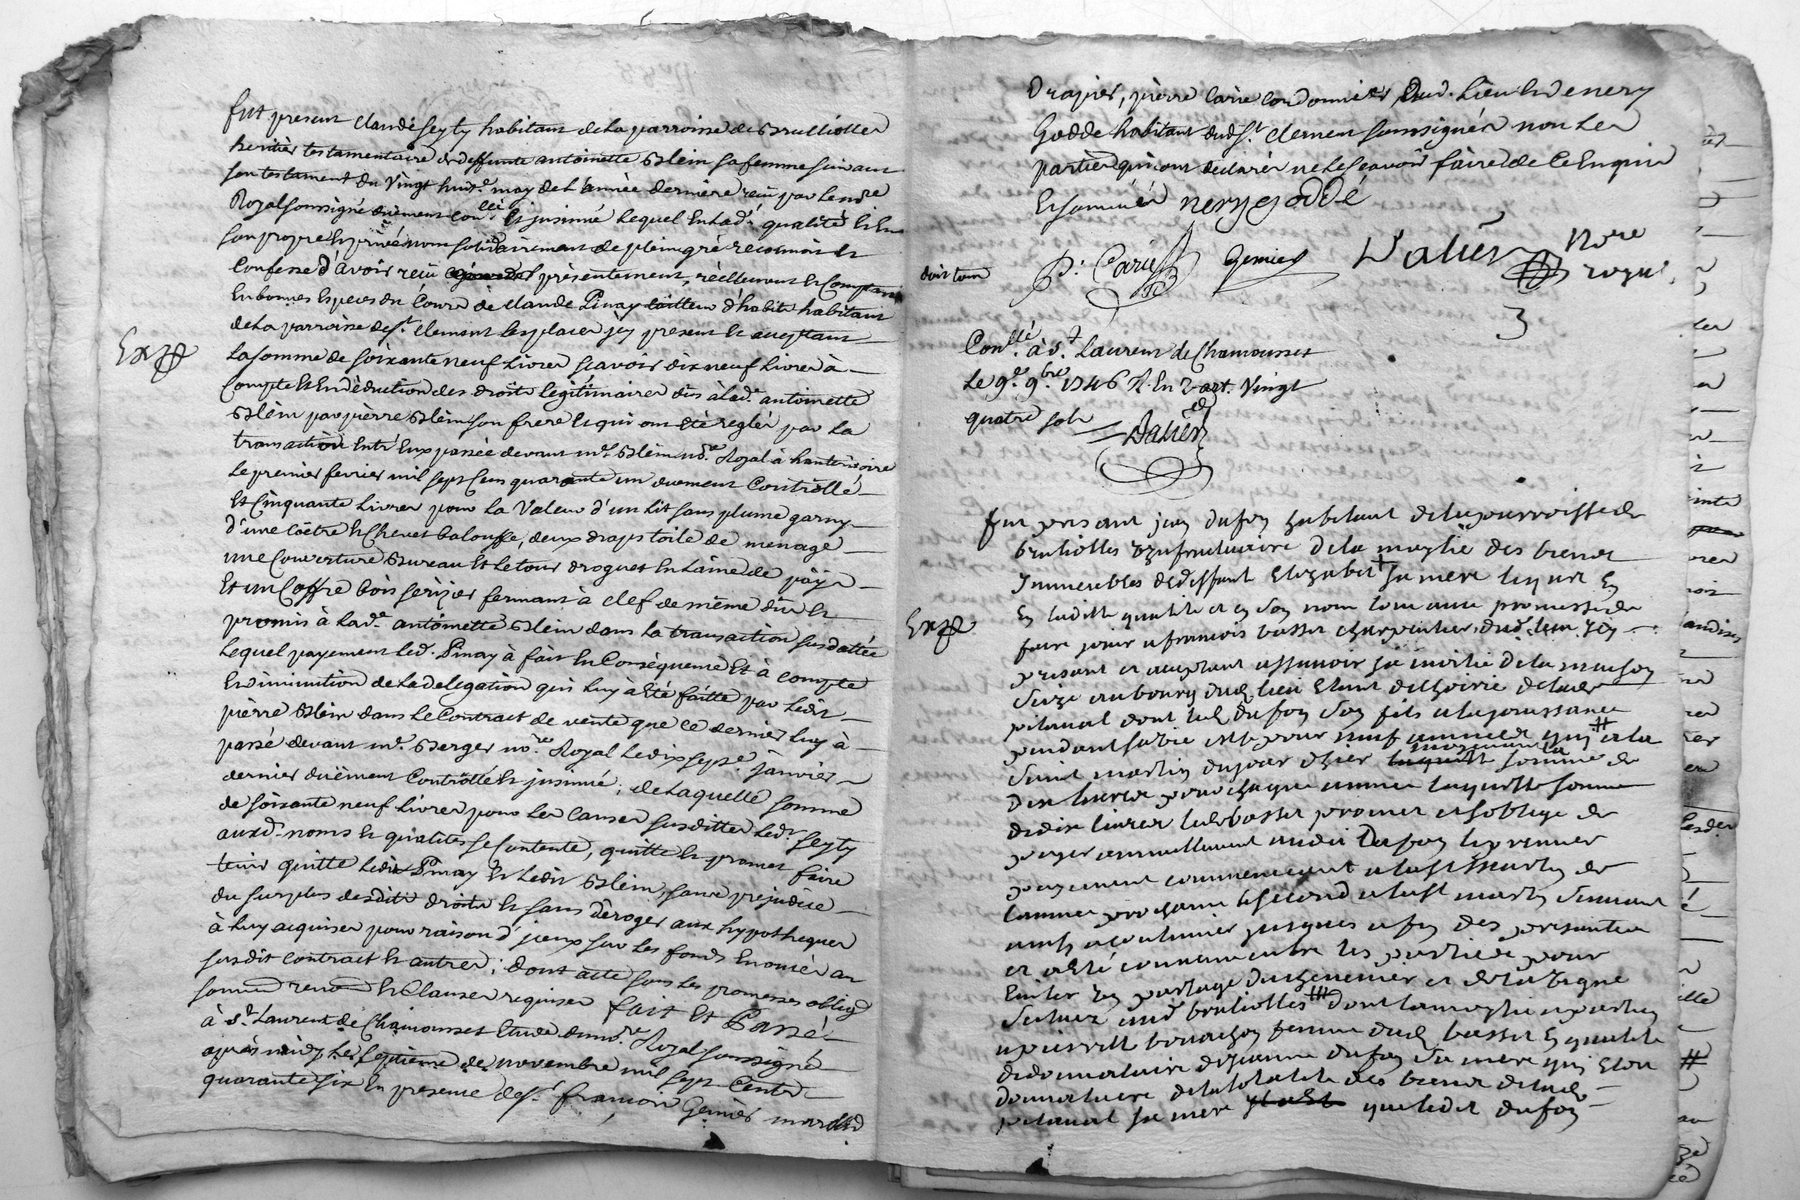 fut present claude Seyty habitant de la parroisse de Brulliolles
heritier testamentaire de deffunte antoinette Blein sa femme suivant
son testament du Vingt huit.e may de L'année derniere reçu par Le no.re
Royal soussigné duement con.llé et jnsinué Lequel En lad. qualité et En
son propre et privé nom solidairement de plein gré reconnoit et
Confesse d'avoir reçu présentement, réellement et Comptant
En bonnes Especes du Cours de claude Pinay tailleur d'habits habitant
de La parroisse de S.t Clement Les places jcy present et acceptant
Exp
La somme de soixante neuf Livres sçavoir dix neuf Livres à
Compte et En déduction des droits légitimaires dûs à lad. antoinette
Blein par pierre Blein son frere Et qui ont été reglés par La
transaction Entr'Eux passée devant m.e Blein no.re Royal à
Le premier fevrier mil sept Cens quarante un duement Contrôllé
Et Cinquante Livres pour La Valeur d'un Lit sans plume garny
d'une Coëtre et Chevet balouffe, deux draps toile de menage
une Couverture Bureau Et Le tour droguet En Laine de païs
Et un Coffre bois serizier fermant à clef de même dûs et
promis à Lad.e antoinette Blein dans La transaction susdattée
Lequel payement Led. Pinay à fait En Conséquence Et à compte
En diminution de La delegation qui Luy à Eté faitte par Ledit
pierre Blein dans Le Contract de vente que ce dernier Luy à
passé devant m.e Berger no.re Royal Le dix sept.e janvier
dernier duëment Contrôllé et jnsinué; de Laquelle somme
de soixante neuf Livres pour Les Causes susdittes Led. Seyty
auxd. noms et qualités se Contente, quitte et promet faire
tenir quitte Ledit Pinay Et Ledit Blein, sans prejudice
du surplus desdits droits et sans déroger aux hypotheques
à Luy acquises pour raison d'jceux sur Les fonds Enoncés au
susdit contract et autres; dont acte sous Les promesses oblig.
renon. et Clauses requises fait Et Passé
à S.t Laurent de Chamousset Etude du no.re Royal soussigné
après midy Le septieme de novembre mil sept Cents
quarante six En presence de S.r francois Genies march.d
Drapier, pierre Carie Cordonnier dud. Lieu Et Nery
Godde habitant dud S.t Clement soussignés non Les
parties qui ont declarés ne Le sçavoir faire de ce Enquis
Et sommés nery godde
droit tour
P. Carie Genies Dalier No.re
royal
Con.llé à S.t Laurent de Chamousset
Le 9.e 9.bre 1746 R. En 2 art. Vingt
quatre sols
Dalier
fut present jean dufon habitant de la parroisse de
bruliolles uzufruituaire de la moytié des biens
Immeubles de deffunt Elizabet sa mere lequel En
Exp
En ladite qualité et En son nom
faire jouir a francois basset charpentier dud. lieu jcy
present et acceptant assavoir la moitié de la maison
size au bourg dud. lieu Etant de l'hoirie de lad.
pitaval dont led. dufon son fils a la jouissance
pendant sa vie et pour neuf années qui a la
saint martin dujour d'hier moyennant la somme de
dix livres pour chaque année laquelle somme
de dix livres led. basset promet et s'oblige de
payer annuellement audit Dufon le premier
payement commencant a la st martin de
l'année prochaine le second a la st martin suivant
ainsi a continuer jusques a fin des presentes
et a été convenu entre les parties pour
Eviter le partage du chenevier et de la vigne
situez aud bruliolles dont la moytié apartien
a pierrette bonachon femme dud. basset En qualité
de donnataire de jeanne dufon sa mere qui Etoit
donnataire de la totalité des biens de lad.
pitaval sa mere que ledit dufon